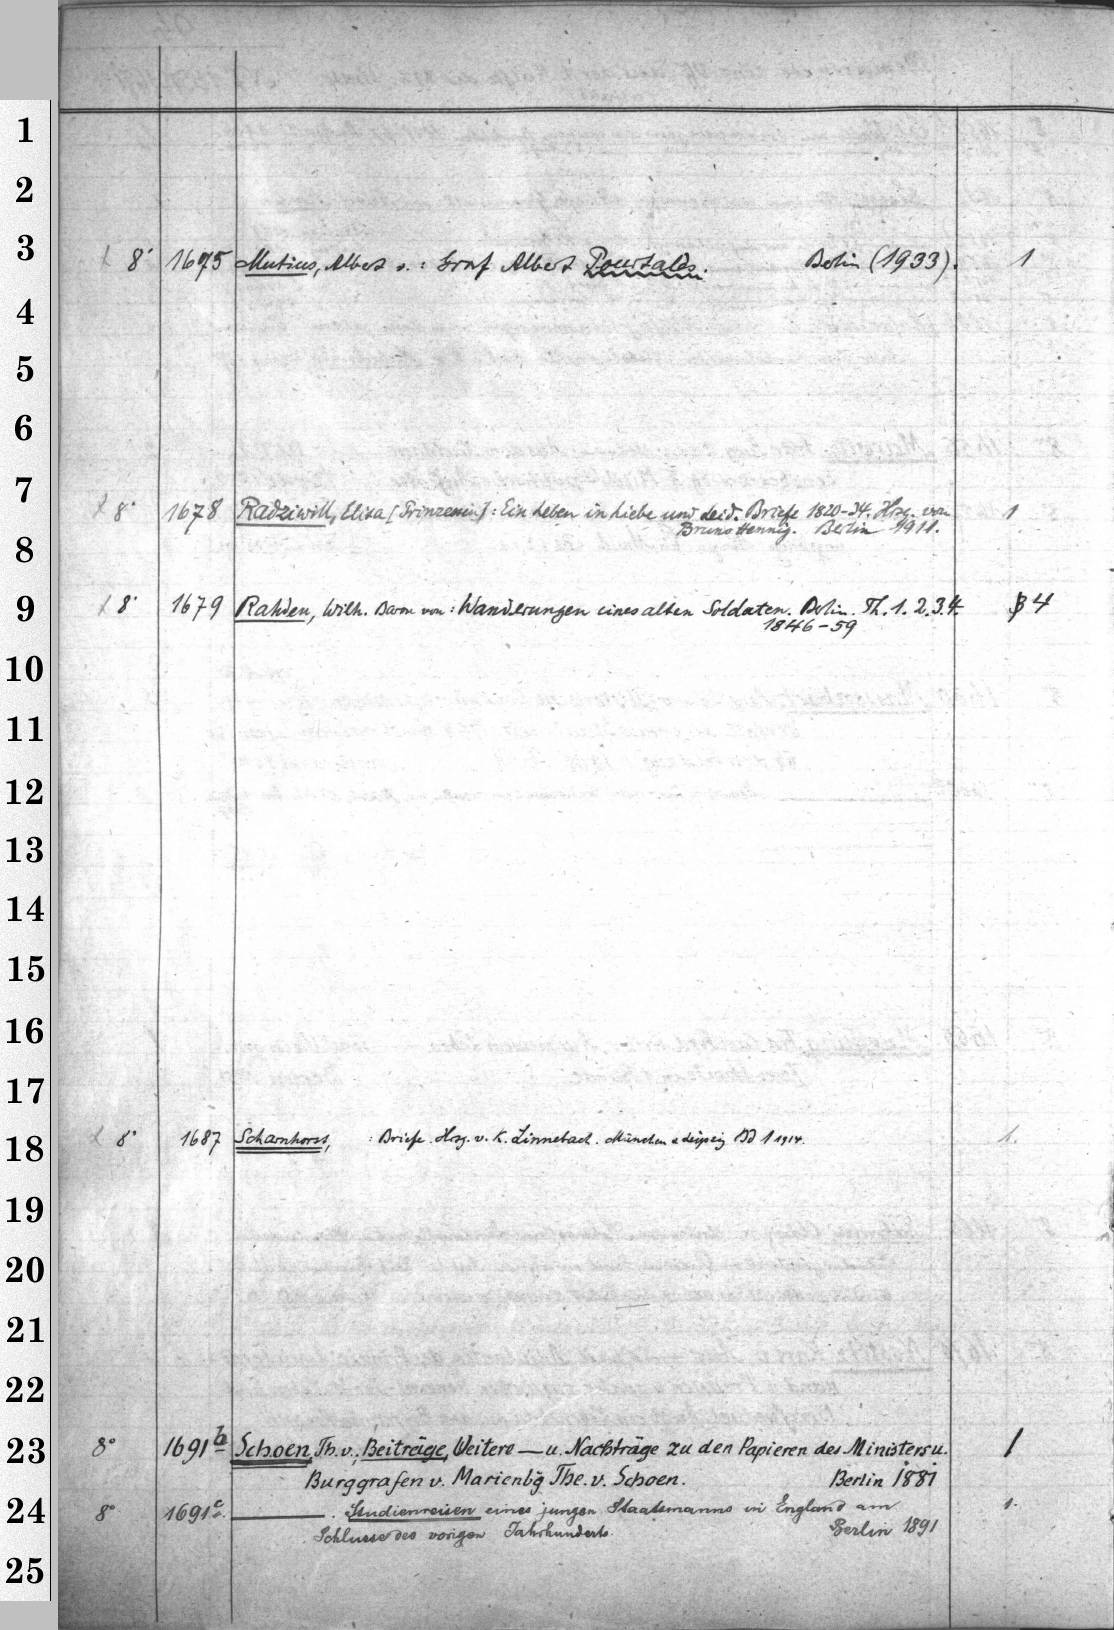 1
2
3
8° 1675 Mutius, Albert v.: Graf Albert Pourtalès. Berlin (1933). 1
4
5
6
7
8° 1678 Radziwill, Eliza [Prinzessin]: Ein Leben in Liebe und Leid. Briefe 1820-34. Hrsg. von 1
Bruno Hennig. Berlin 1911.
8
9
8° 1679 Rahden, Wilh. Baron von: Wanderungen eines alten Soldaten. Berlin. Th. 1. 2. 3. 4. 4
1846-59
10
11
12
13
14
15
16
17
18
8° 1687 Scharnhorst, : Briefe. Hrsg. v. K. Linnebach. München u Leipzig Bd 1 1914. 1.
19
20
21
22
23
8° 1691b Schoen, Th. v., Beiträge, Weitere — u. Nachträge zu den Papieren des Ministers u. 1
Burggrafen v. Marienbg The. v. Schoen. Berlin 1881
24
8° 1691c. —. Studienreisen eines jungen Staatsmanns in England am 1.
Schlusse des vorigen Jahrhunderts. Berlin 1891
25